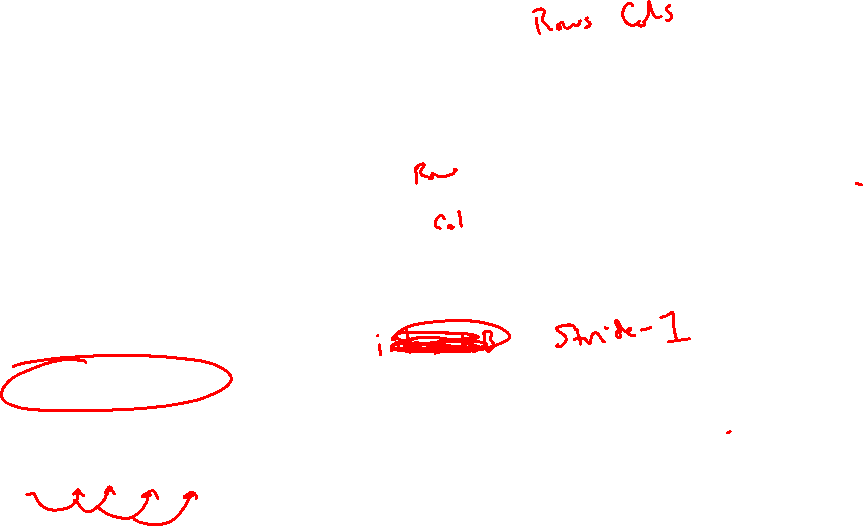 Rows Cols
Row
Col
i
Stride-1